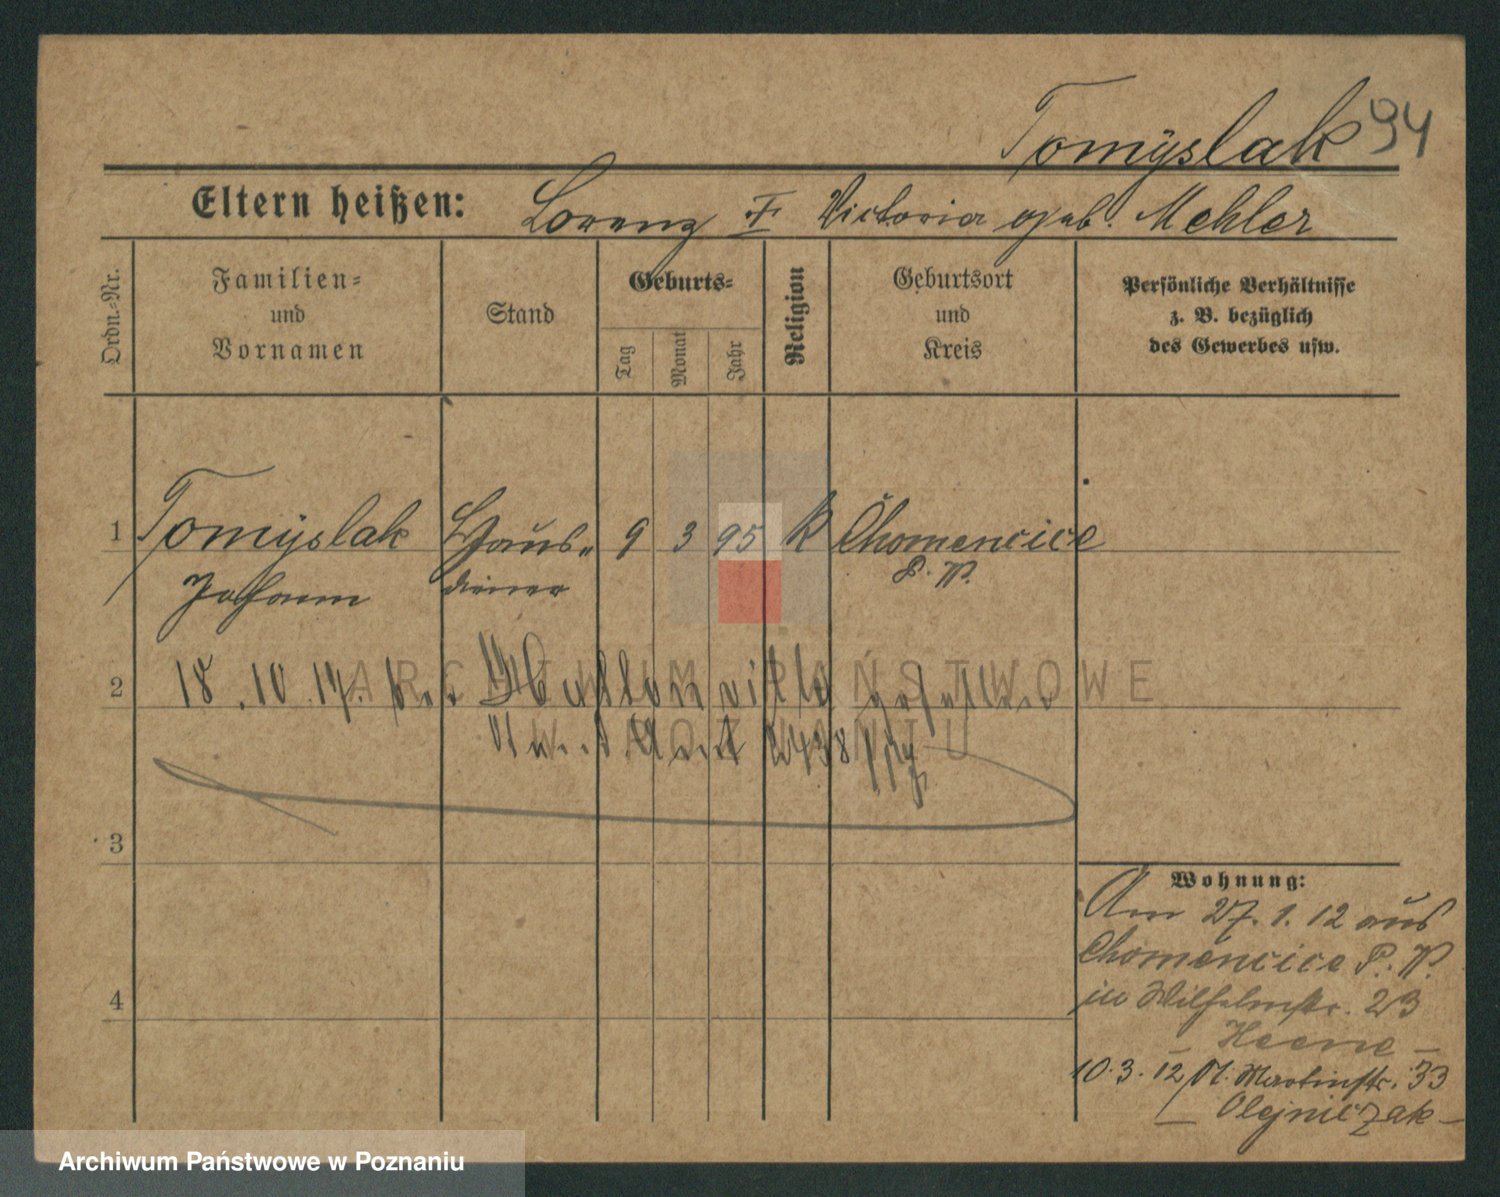 Tomyslak 94
Eltern heißen: Lorenz u. Victoria geb. Mehler
Ordn.-Nr.
Familien-
und
Vornamen
Stand
Geburts-
Tag
Monat
Jahr
Religion
Geburtsort
und
Kreis
Persönliche Verhältnisse
z. B. bezüglich
des Gewerbes usw.
1 Tomÿslak Haus- 9 3 95 k Chomencice
Johann diener P. W.
2 18.10.17. bei gefallen
2438
3
4
Wohnung:
Am 27.1.12 aus
Chomencice P. W.
in Wilhelmstr. 23
10.3.12 St. Martinstr. 33
Olejniczak
ARCHIWUM PAŃSTWOWE
W POZNANIU
Archiwum Państwowe w Poznaniu